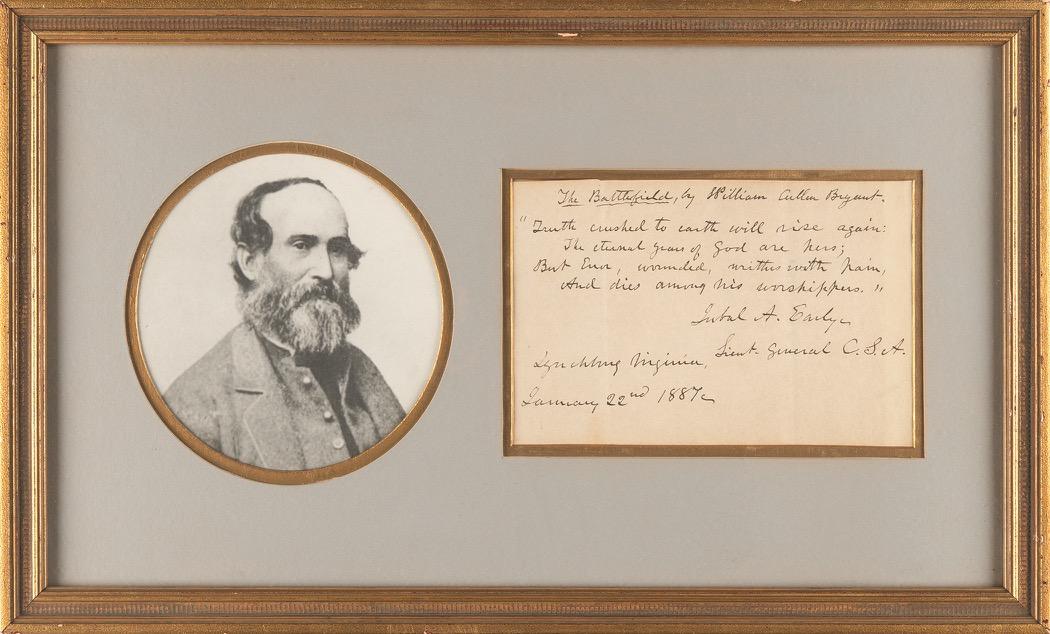 The Battlefield, by William Cullen Bryant.
"Truth crushed to earth will rise again:
The eternal years of God are hers;
But Error, wounded, writhes with pain,
And dies among his worshippers."
Jubal A. Early
Lieut. General C.S.A.
Lynchburg Virginia,
January 22nd 1887